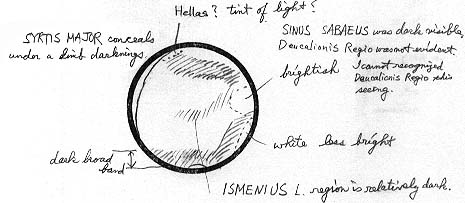 Hellas? tint of light?
SYRTIS MAJOR conceals
under a limb darkenings.
SINUS SABAEUS was dark visible,
Deucalionis Regio was not evident
brightish
I cannot recognized
Deucalionis Regio
seeing.
white less bright
dark broad
band
ISMENIUS L. region is relatively dark.